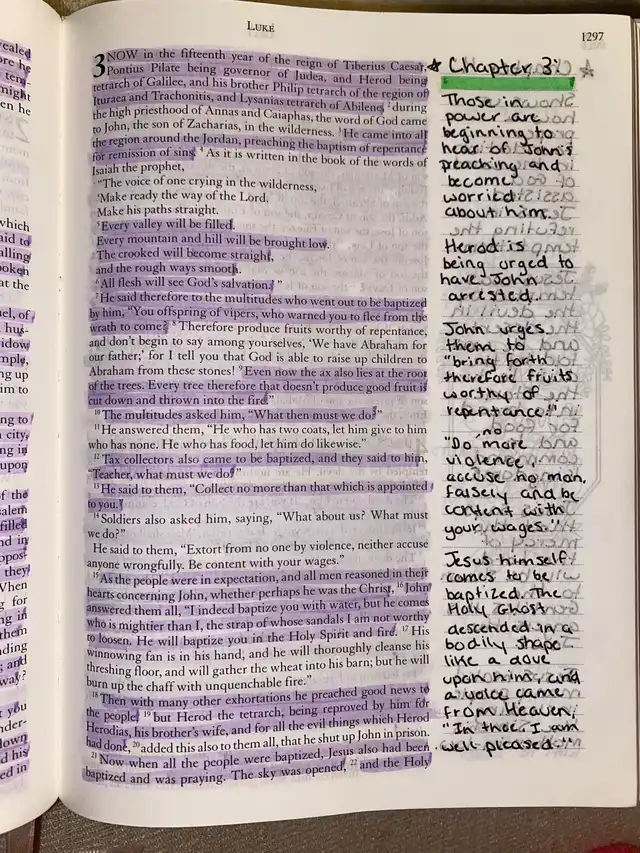 LUKE
1297
3 NOW in the fifteenth year of the reign of Tiberius Caesar,
Pontius Pilate being governor of Judea, and Herod being
tetrarch of Galilee, and his brother Philip tetrarch of the region of
Ituraea and Trachonitis, and Lysanias tetrarch of Abilene, 2 during
the high priesthood of Annas and Caiaphas, the word of God came
to John, the son of Zacharias, in the wilderness. 3 He came into all
the region around the Jordan, preaching the baptism of repentance
for remission of sins. 4 As it is written in the book of the words of
Isaiah the prophet,
“The voice of one crying in the wilderness,
‘Make ready the way of the Lord.
Make his paths straight.
5 Every valley will be filled.
Every mountain and hill will be brought low.
The crooked will become straight,
and the rough ways smooth.
6 All flesh will see God’s salvation.’ ”
7 He said therefore to the multitudes who went out to be baptized
by him, “You offspring of vipers, who warned you to flee from the
wrath to come? 8 Therefore produce fruits worthy of repentance,
and don’t begin to say among yourselves, ‘We have Abraham for
our father;’ for I tell you that God is able to raise up children to
Abraham from these stones! 9 Even now the ax also lies at the root
of the trees. Every tree therefore that doesn’t produce good fruit is
cut down and thrown into the fire.”
10 The multitudes asked him, “What then must we do?”
11 He answered them, “He who has two coats, let him give to him
who has none. He who has food, let him do likewise.”
12 Tax collectors also came to be baptized, and they said to him,
“Teacher, what must we do?”
13 He said to them, “Collect no more than that which is appointed
to you.”
14 Soldiers also asked him, saying, “What about us? What must
we do?”
He said to them, “Extort from no one by violence, neither accuse
anyone wrongfully. Be content with your wages.”
15 As the people were in expectation, and all men reasoned in their
hearts concerning John, whether perhaps he was the Christ, 16 John
answered them all, “I indeed baptize you with water, but he comes
who is mightier than I, the strap of whose sandals I am not worthy
to loosen. He will baptize you in the Holy Spirit and fire. 17 His
winnowing fan is in his hand, and he will thoroughly cleanse his
threshing floor, and will gather the wheat into his barn; but he will
burn up the chaff with unquenchable fire.”
18 Then with many other exhortations he preached good news to
the people, 19 but Herod the tetrarch, being reproved by him for
Herodias, his brother’s wife, and for all the evil things which Herod
had done, 20 added this also to them all, that he shut up John in prison.
21 Now when all the people were baptized, Jesus also had been
baptized and was praying. The sky was opened, 22 and the Holy
Chapter 3:
Those in
power are
beginning to
hear of John's
preaching and
become
worried
about him.
Herod is
being urged to
have John
arrested.
John urges
them to
"bring forth
therefore fruits
worthy of
repentance."
no
"Do more
violence,
accuse no man,
falsely and be
content with
your wages."
Jesus himself
comes to be
baptized. The
Holy Ghost
descended in a
bodily shape
like a dove
upon him, and
a voice came
from Heaven,
"In thee, I am
well pleased."